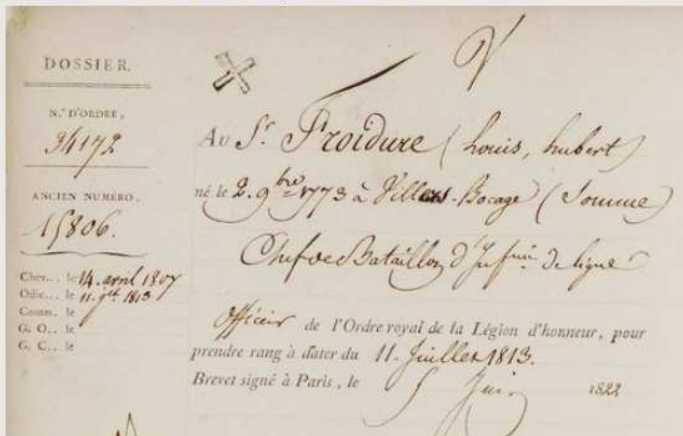 DOSSIER.
N.º D'ORDRE,
34172
ANCIEN NUMÉRO.
15806.
Chev... le 14. avril 1807
Offic... le 11. jet 1813
Comm. le
G. O.. le
G. C... le
V
Au Sr. Froidure (Louis, hubert)
né le 2. 9bre 1773 à Villers-Bocage (Somme)
Chef de Bataillon d'Infrie de ligne
Officier de l'Ordre royal de la Légion d'honneur, pour
prendre rang à dater du 11. Juillet 1813.
Brevet signé à Paris, le 5 Juin 1822